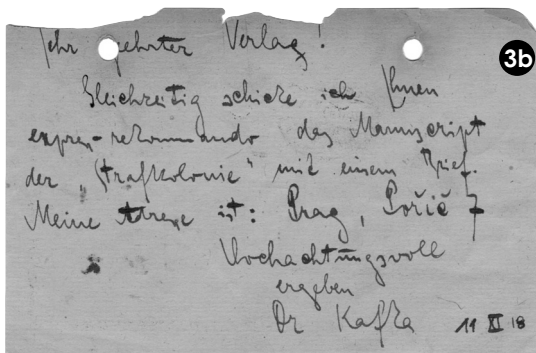 Sehr geehrter Verlag!
3b
Gleichzeitig schicke ich Ihnen
expres-rekommando das Manuscript
der „Strafkolonie“ mit einem Brief.
Meine Adresse ist: Prag, Pořič 7
Hochachtungsvoll
ergeben
Dr Kafka 11 XI 18